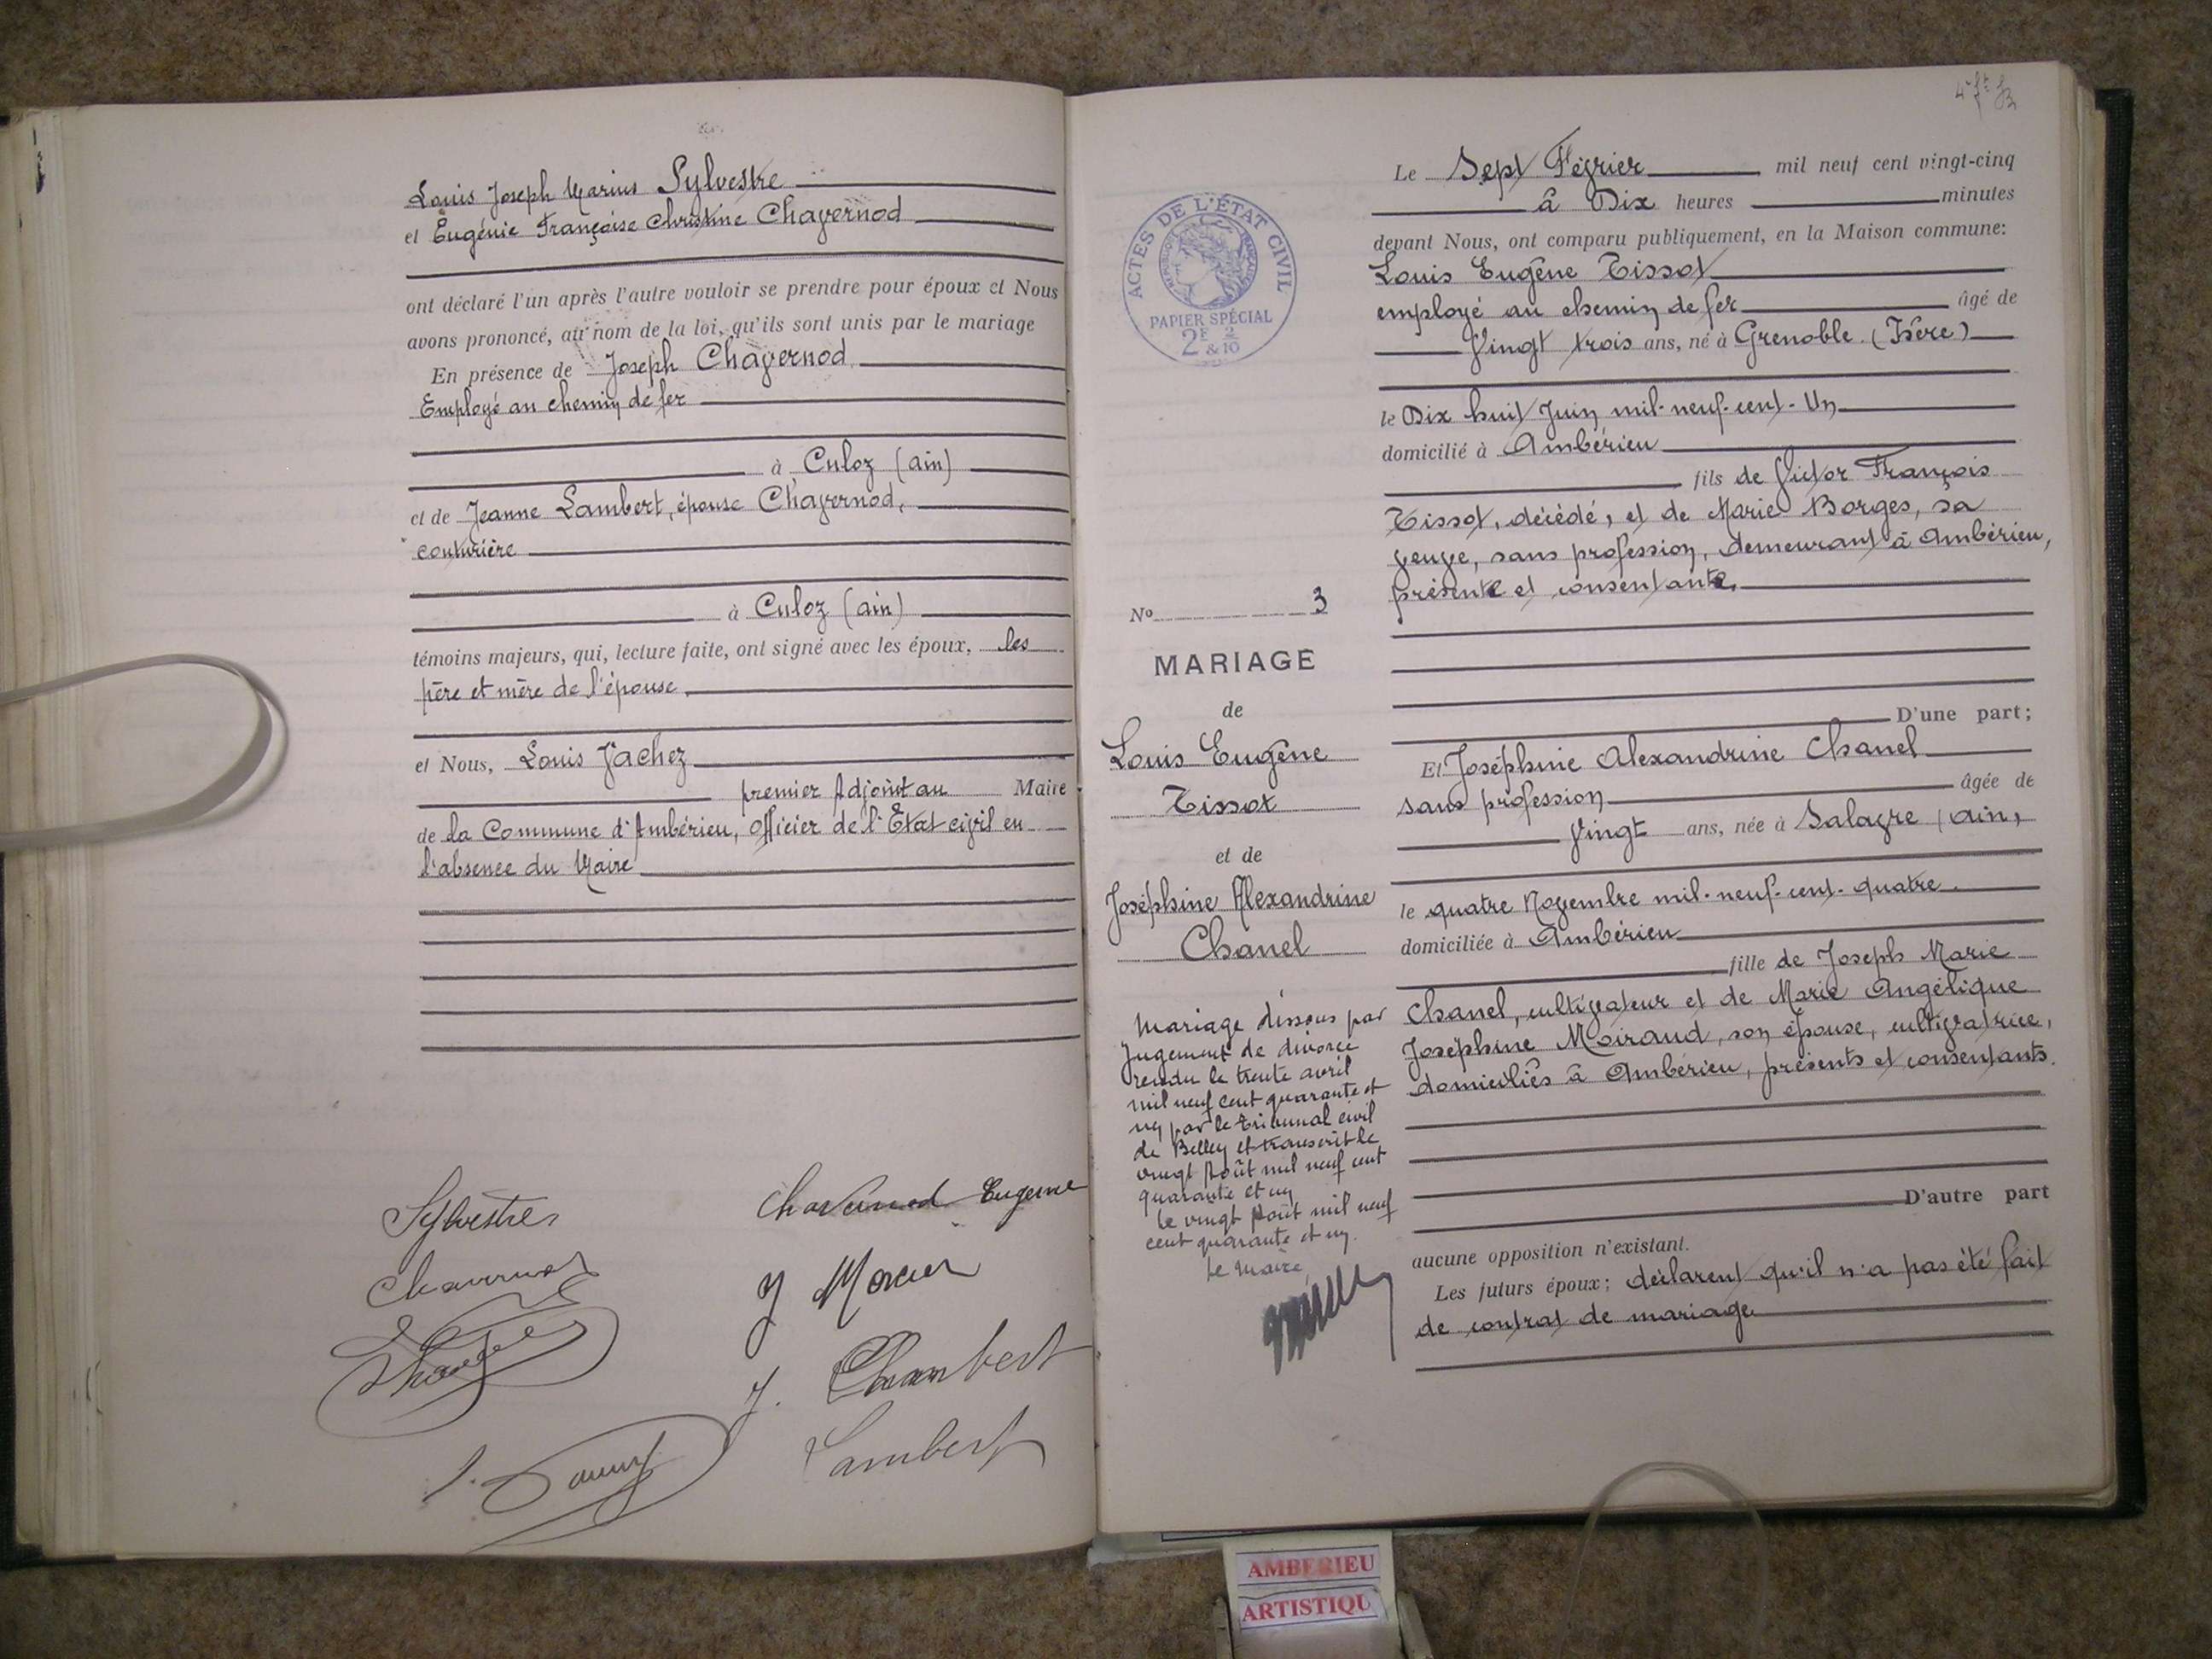 Louis Joseph Marius Sylvestre
et Eugénie Françoise Christine Chavernod
ont déclaré l'un après l'autre vouloir se prendre pour époux et Nous
avons prononcé, au nom de la loi, qu'ils sont unis par le mariage
En présence de Joseph Chavernod
Employé au chemin de fer
à Culoz (ain)
et de Jeanne Lambert, épouse Chavernod,
couturière
à Culoz (ain)
témoins majeurs, qui, lecture faite, ont signé avec les époux, les
père et mère de l'épouse.
et Nous, Louis Vachez
premier Adjoint au Maire
de la Commune d'Ambérieu, Officier de l'Etat civil en
l'absence du Maire
Sylvestre
Chavernod Eugenie
Chavernod
J Mercier
J. Chambert
Lambert
ACTES DE L'ÉTAT CIVIL
RÉPUBLIQUE FRANÇAISE
PAPIER SPÉCIAL
2F & 2/10
No 3
MARIAGE
de
Louis Eugène
Tissot
et de
Joséphine Alexandrine
Chanel
Mariage dissous par
jugement de divorce
rendu le trente avril
mil neuf cent quarante et
un par le tribunal civil
de Belley et transcrit le
vingt Août mil neuf cent
quarante et un
le vingt Août mil neuf
cent quarante et un.
Le Maire
Le Sept Février mil neuf cent vingt-cinq
à Dix heures minutes
devant Nous, ont comparu publiquement, en la Maison commune:
Louis Eugène Tissot
employé au chemin de fer âgé de
Vingt trois ans, né à Grenoble (Isère)
le Dix huit Juin mil-neuf-cent-Un
domicilié à Ambérieu
fils de Victor François
Tissot, décédé, et de Marie Borges, sa
veuve, sans profession, demeurant à Ambérieu,
présente et consentante.
D'une part;
Et Joséphine Alexandrine Chanel
sans profession âgée de
Vingt ans, née à Salavre (ain,
le quatre Novembre mil-neuf-cent-quatre
domiciliée à Ambérieu
fille de Joseph Marie
Chanel, cultivateur et de Marie Angélique
Joséphine Moiraud, son épouse, cultivatrice,
domiciliés à Ambérieu, présents et consentants.
D'autre part
aucune opposition n'existant.
Les futurs époux; déclarent qu'il n'a pas été fait
de contrat de mariage
AMBERIEU
ARTISTIQU